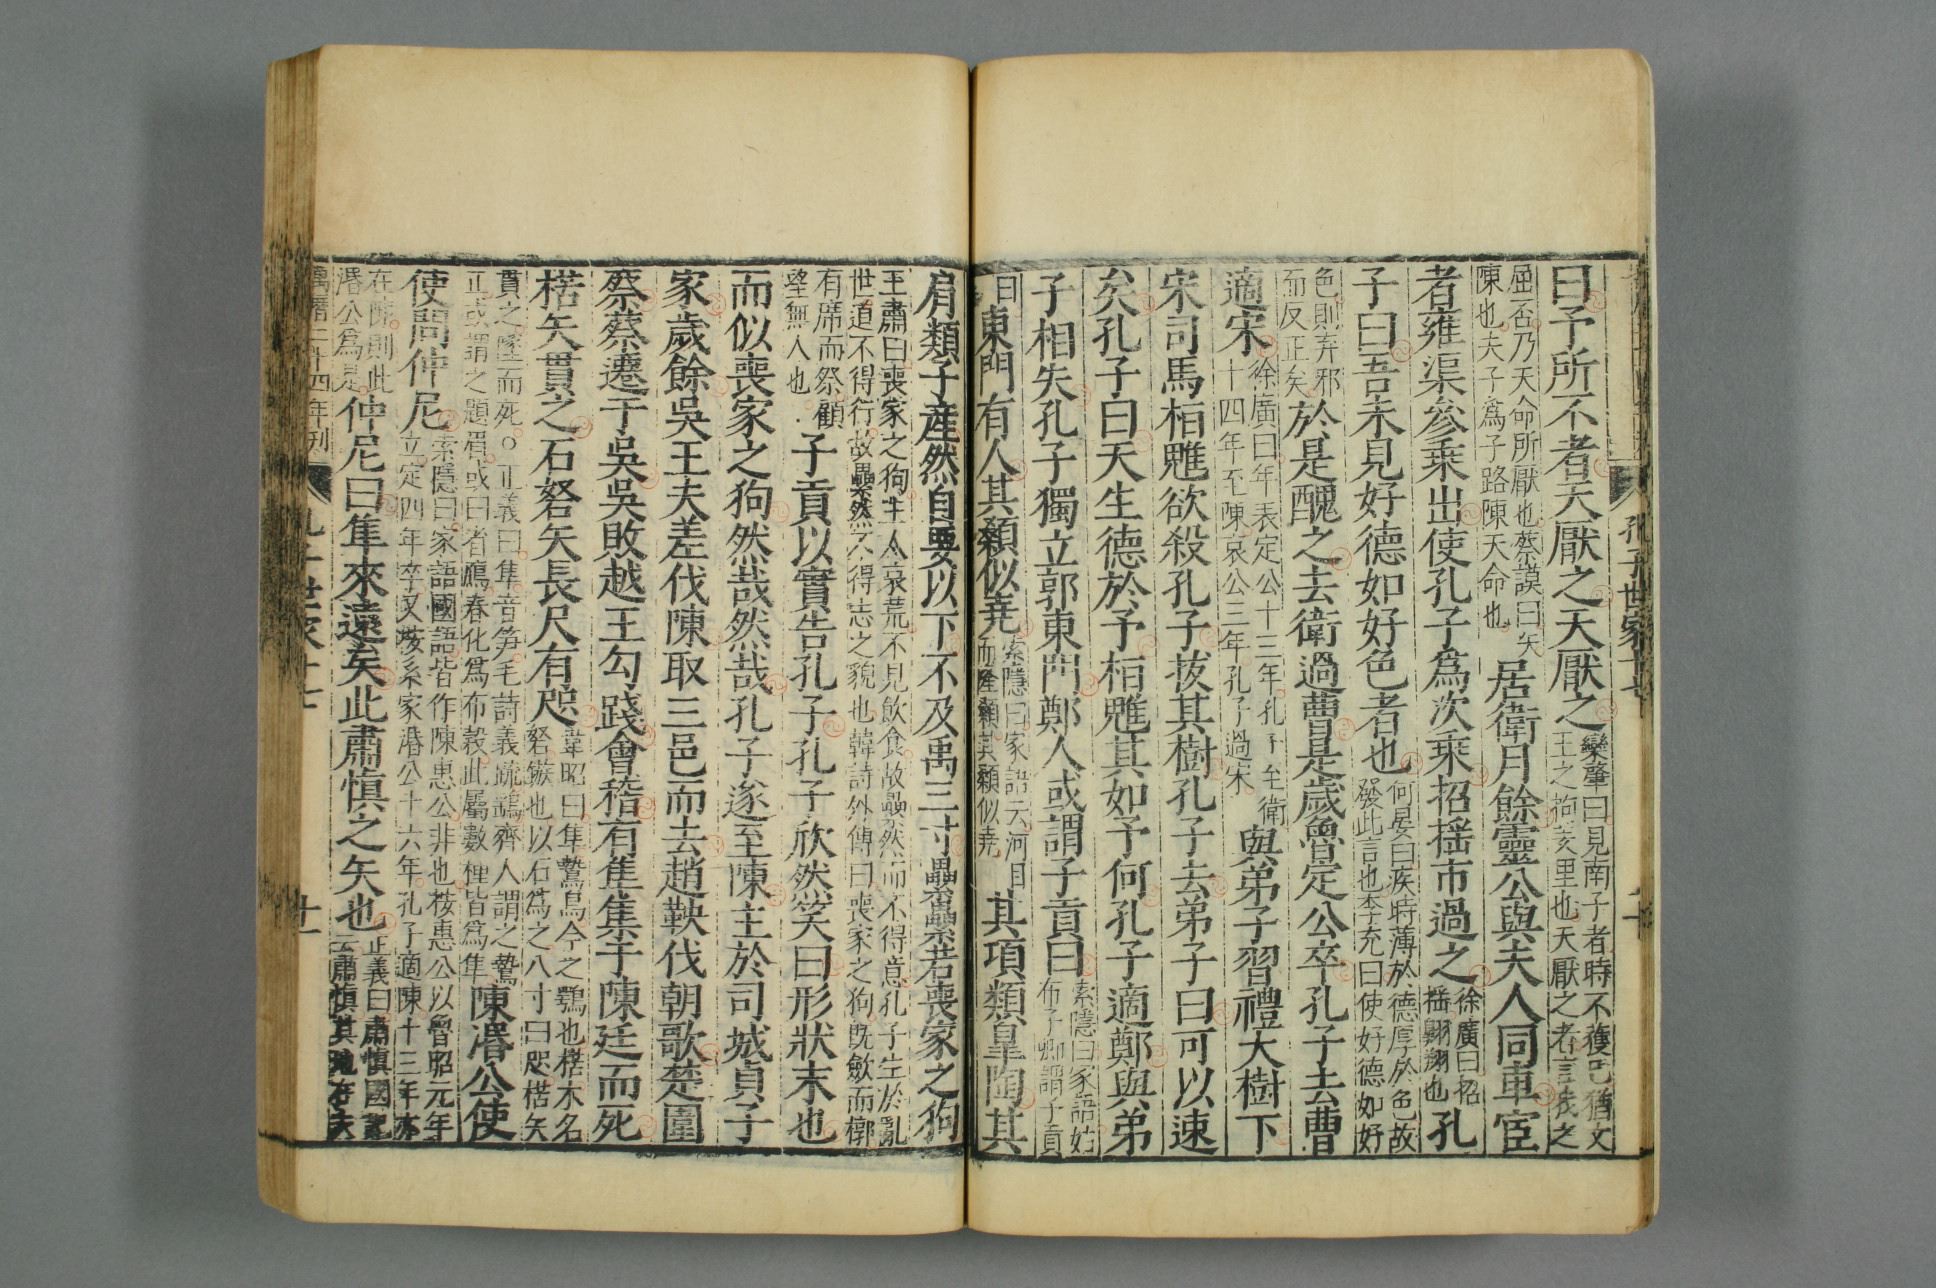 孔子世家十七
曰予所不者天厭之天厭之欒肇曰見南子者時不獲已猶文王之拘羑里也天厭之者言我之
屈否乃天命所厭也蔡謨曰矢陳也夫子爲子路陳天命也居衛月餘靈公與夫人同車宦
者雍渠參乘出使孔子爲次乘招摇市過之徐廣曰招摇翺翔也孔
子曰吾未見好德如好色者也何晏曰疾時薄於德厚於色故發此言也李充曰使好德如好
色則弃邪而反正矣於是醜之去衛過曹是歲魯定公卒孔子去曹
適宋徐廣曰年表定公十三年孔子至衛十四年至陳哀公三年孔子過宋與弟子習禮大樹下
宋司馬桓魋欲殺孔子拔其樹孔子去弟子曰可以速
矣孔子曰天生德於予桓魋其如予何孔子適鄭與弟
子相失孔子獨立郭東門鄭人或謂子貢曰索隱曰家語姑布子卿謂子貢
曰東門有人其顙似堯索隱曰家語云河目而隆顙其顙似堯其項類皐陶其
肩類子産然自要以下不及禹三寸纍纍若喪家之狗
王肅曰喪家之狗主人哀荒不見飲食故纍然而不得意孔子生於亂世道不得行故纍然不得志之貌也韓詩外傳曰喪家之狗旣斂而槨
有席而祭顧望無人也子貢以實告孔子孔子欣然笑曰形狀末也
而似喪家之狗然哉然哉孔子遂至陳主於司城貞子
家歲餘吳王夫差伐陳取三邑而去趙鞅伐朝歌楚圍
蔡蔡遷于吳吳敗越王勾踐會稽有隼集于陳廷而死
楛矢貫之石砮矢長尺有咫韋昭曰隼鷙鳥今之鶚也楛木名砮鏃也以石爲之八寸曰咫楛矢
貫之墜而死○正義曰隼音笋毛詩義疏鷂齊人謂之擊正或謂之題肩或曰者鷹春化爲布穀此屬數種皆爲隼陳湣公使
使問仲尼索隱曰家語國語皆作陳惠公非也按惠公以魯昭元年立定四年卒又按系家湣公十六年孔子適陳十三年亦
在陳則此湣公爲是仲尼曰隼來遠矣此肅慎之矢也正義曰肅慎國記云肅慎其地在夫
萬曆二十四年刊
孔子世家十七
十一